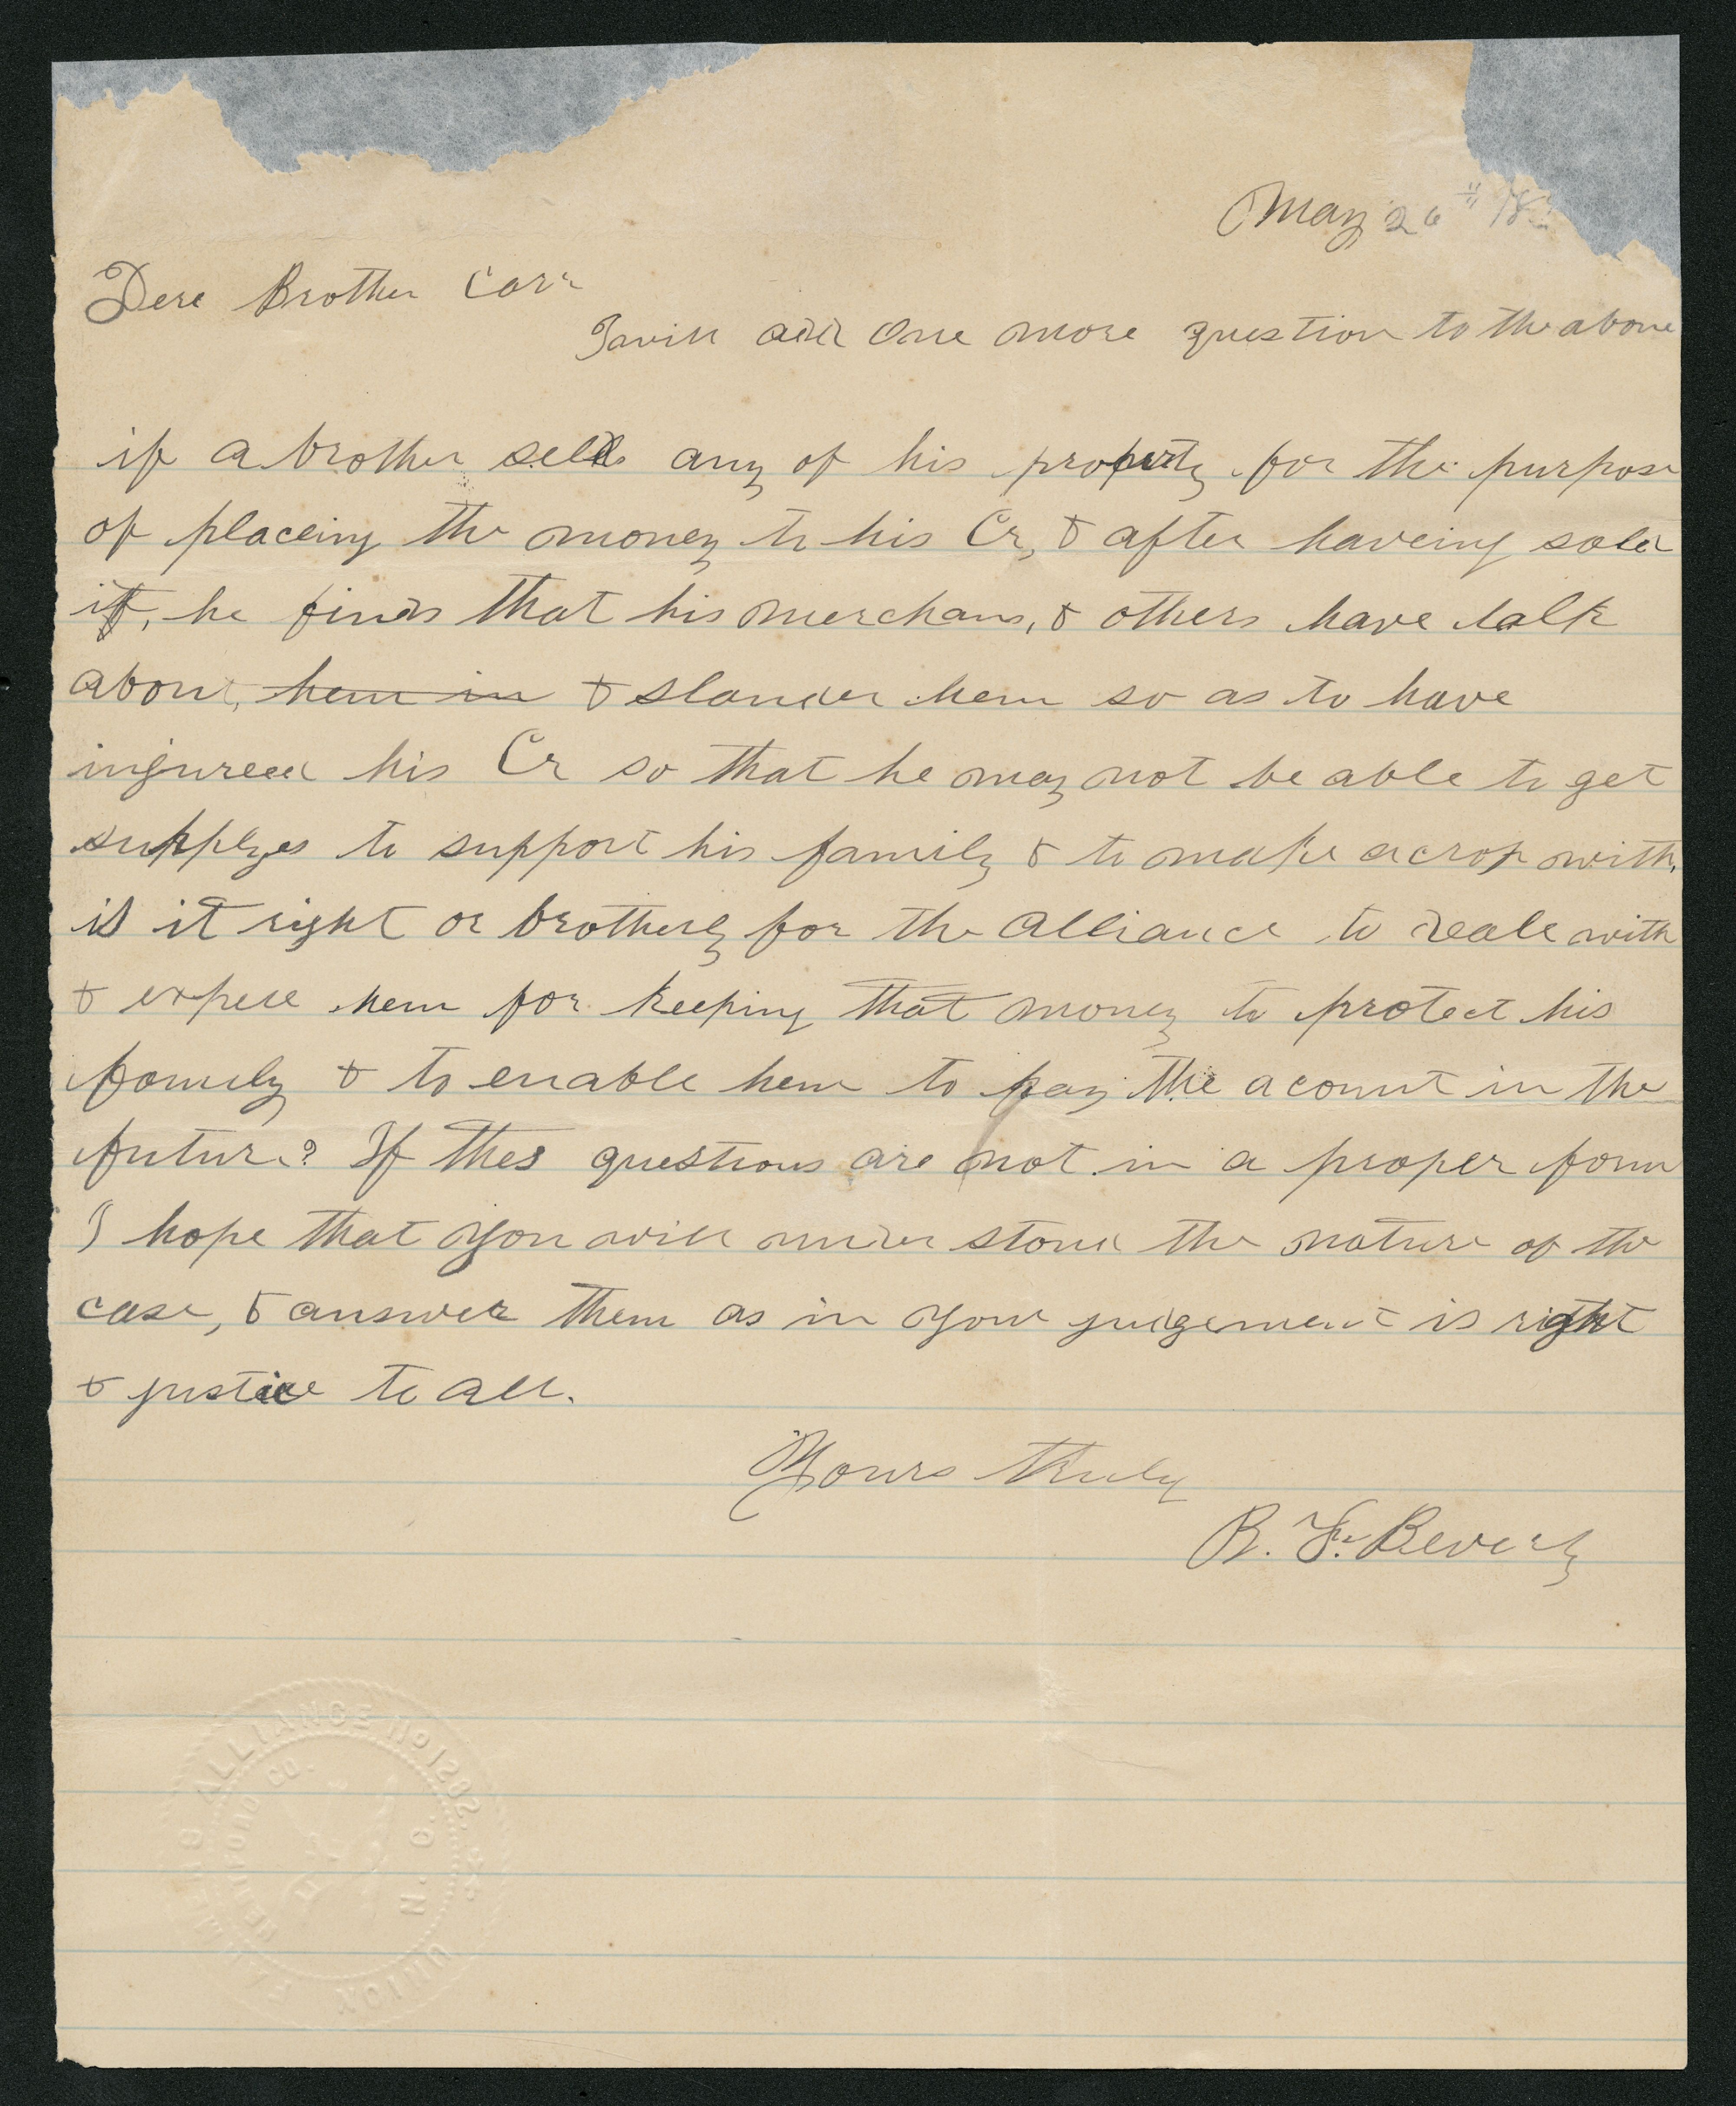 May 26" 18
Dere Brother Carr
I will add one more question to the above
if a brother sells any of his property for the purpose
of placeing the money to his Cr, & after haveing sold
it, he finds that his merchans, & others have talk
about, hem in & slander hem so as to have
injureed his Cr so that he may not be able to get
supplyes to support his family & to make a crop with,
is it right or brotherly for the Alliance to deale with
& expele hem for keeping that money to protect his
family & to enable hem to pay the acount in the
future? If thes questions are not in a proper form
I hope that you will under stand the nature of the
case, & answer them as in your judgement is right
& justice to all.
Yours truly
B. F. Beverly
ALLIANCE No 1282
CO.
N.C.
UNION